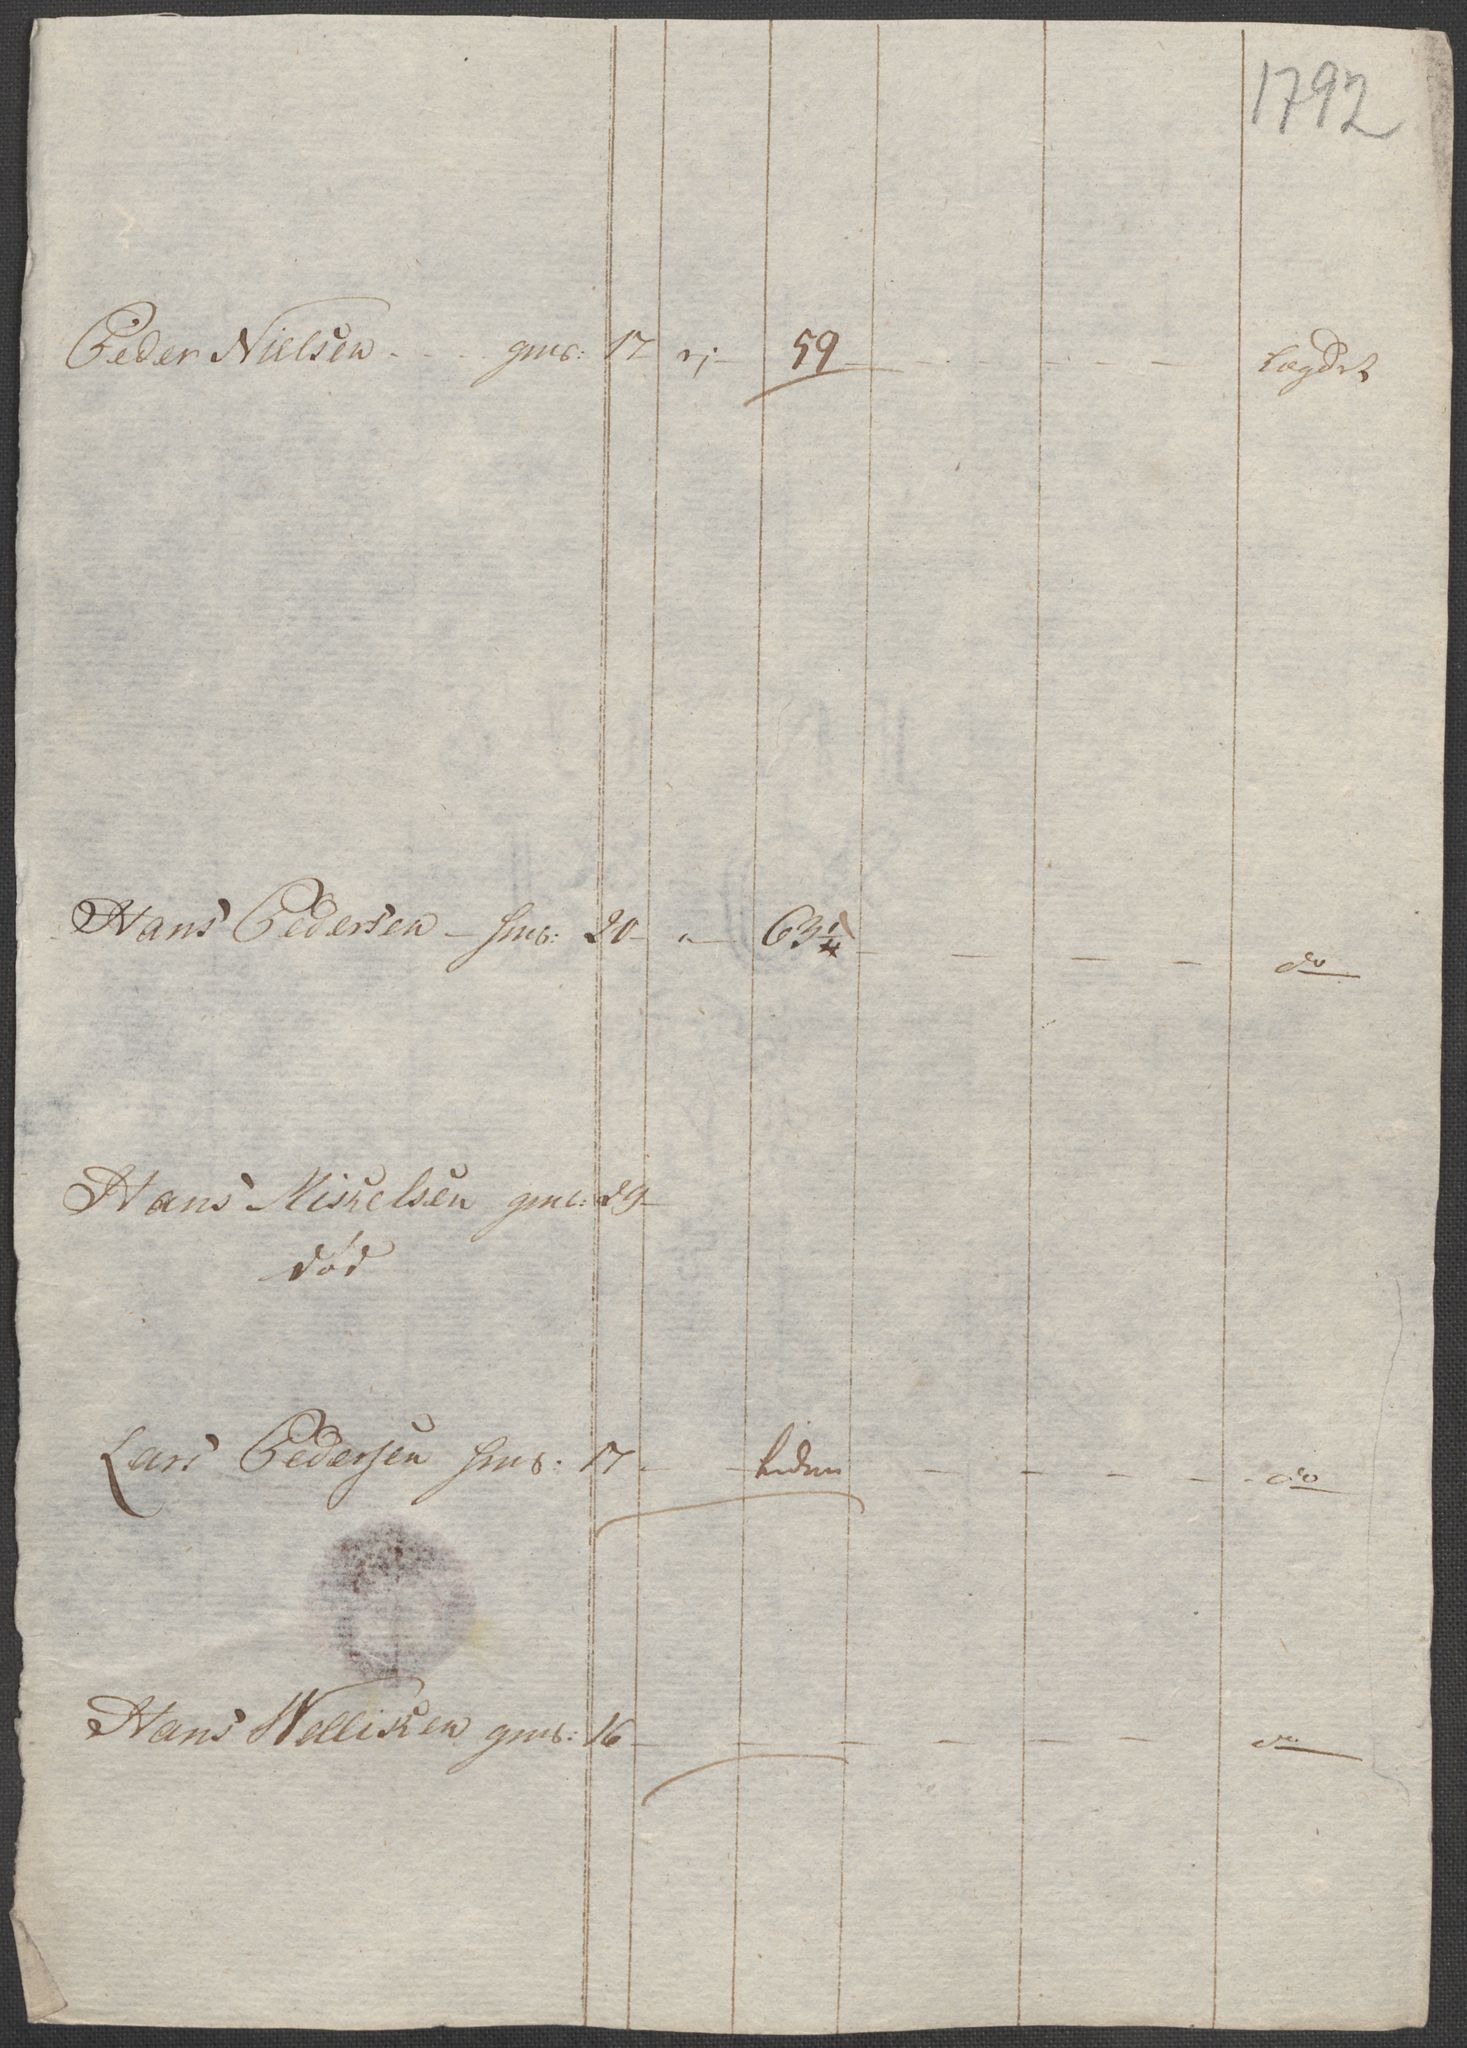 1792
Peder Nielsen - - - gml: 17 - 59 - - - - Lægdet
Hans Pedersen - gml: 20 - " - 63 1/4 - - - - do
Hans Mikkelsen gml: 29
død
Lars Pedersen gml: 17 - liden - - - - - do
Hans Nellisen gml: 16 - - - - - - do